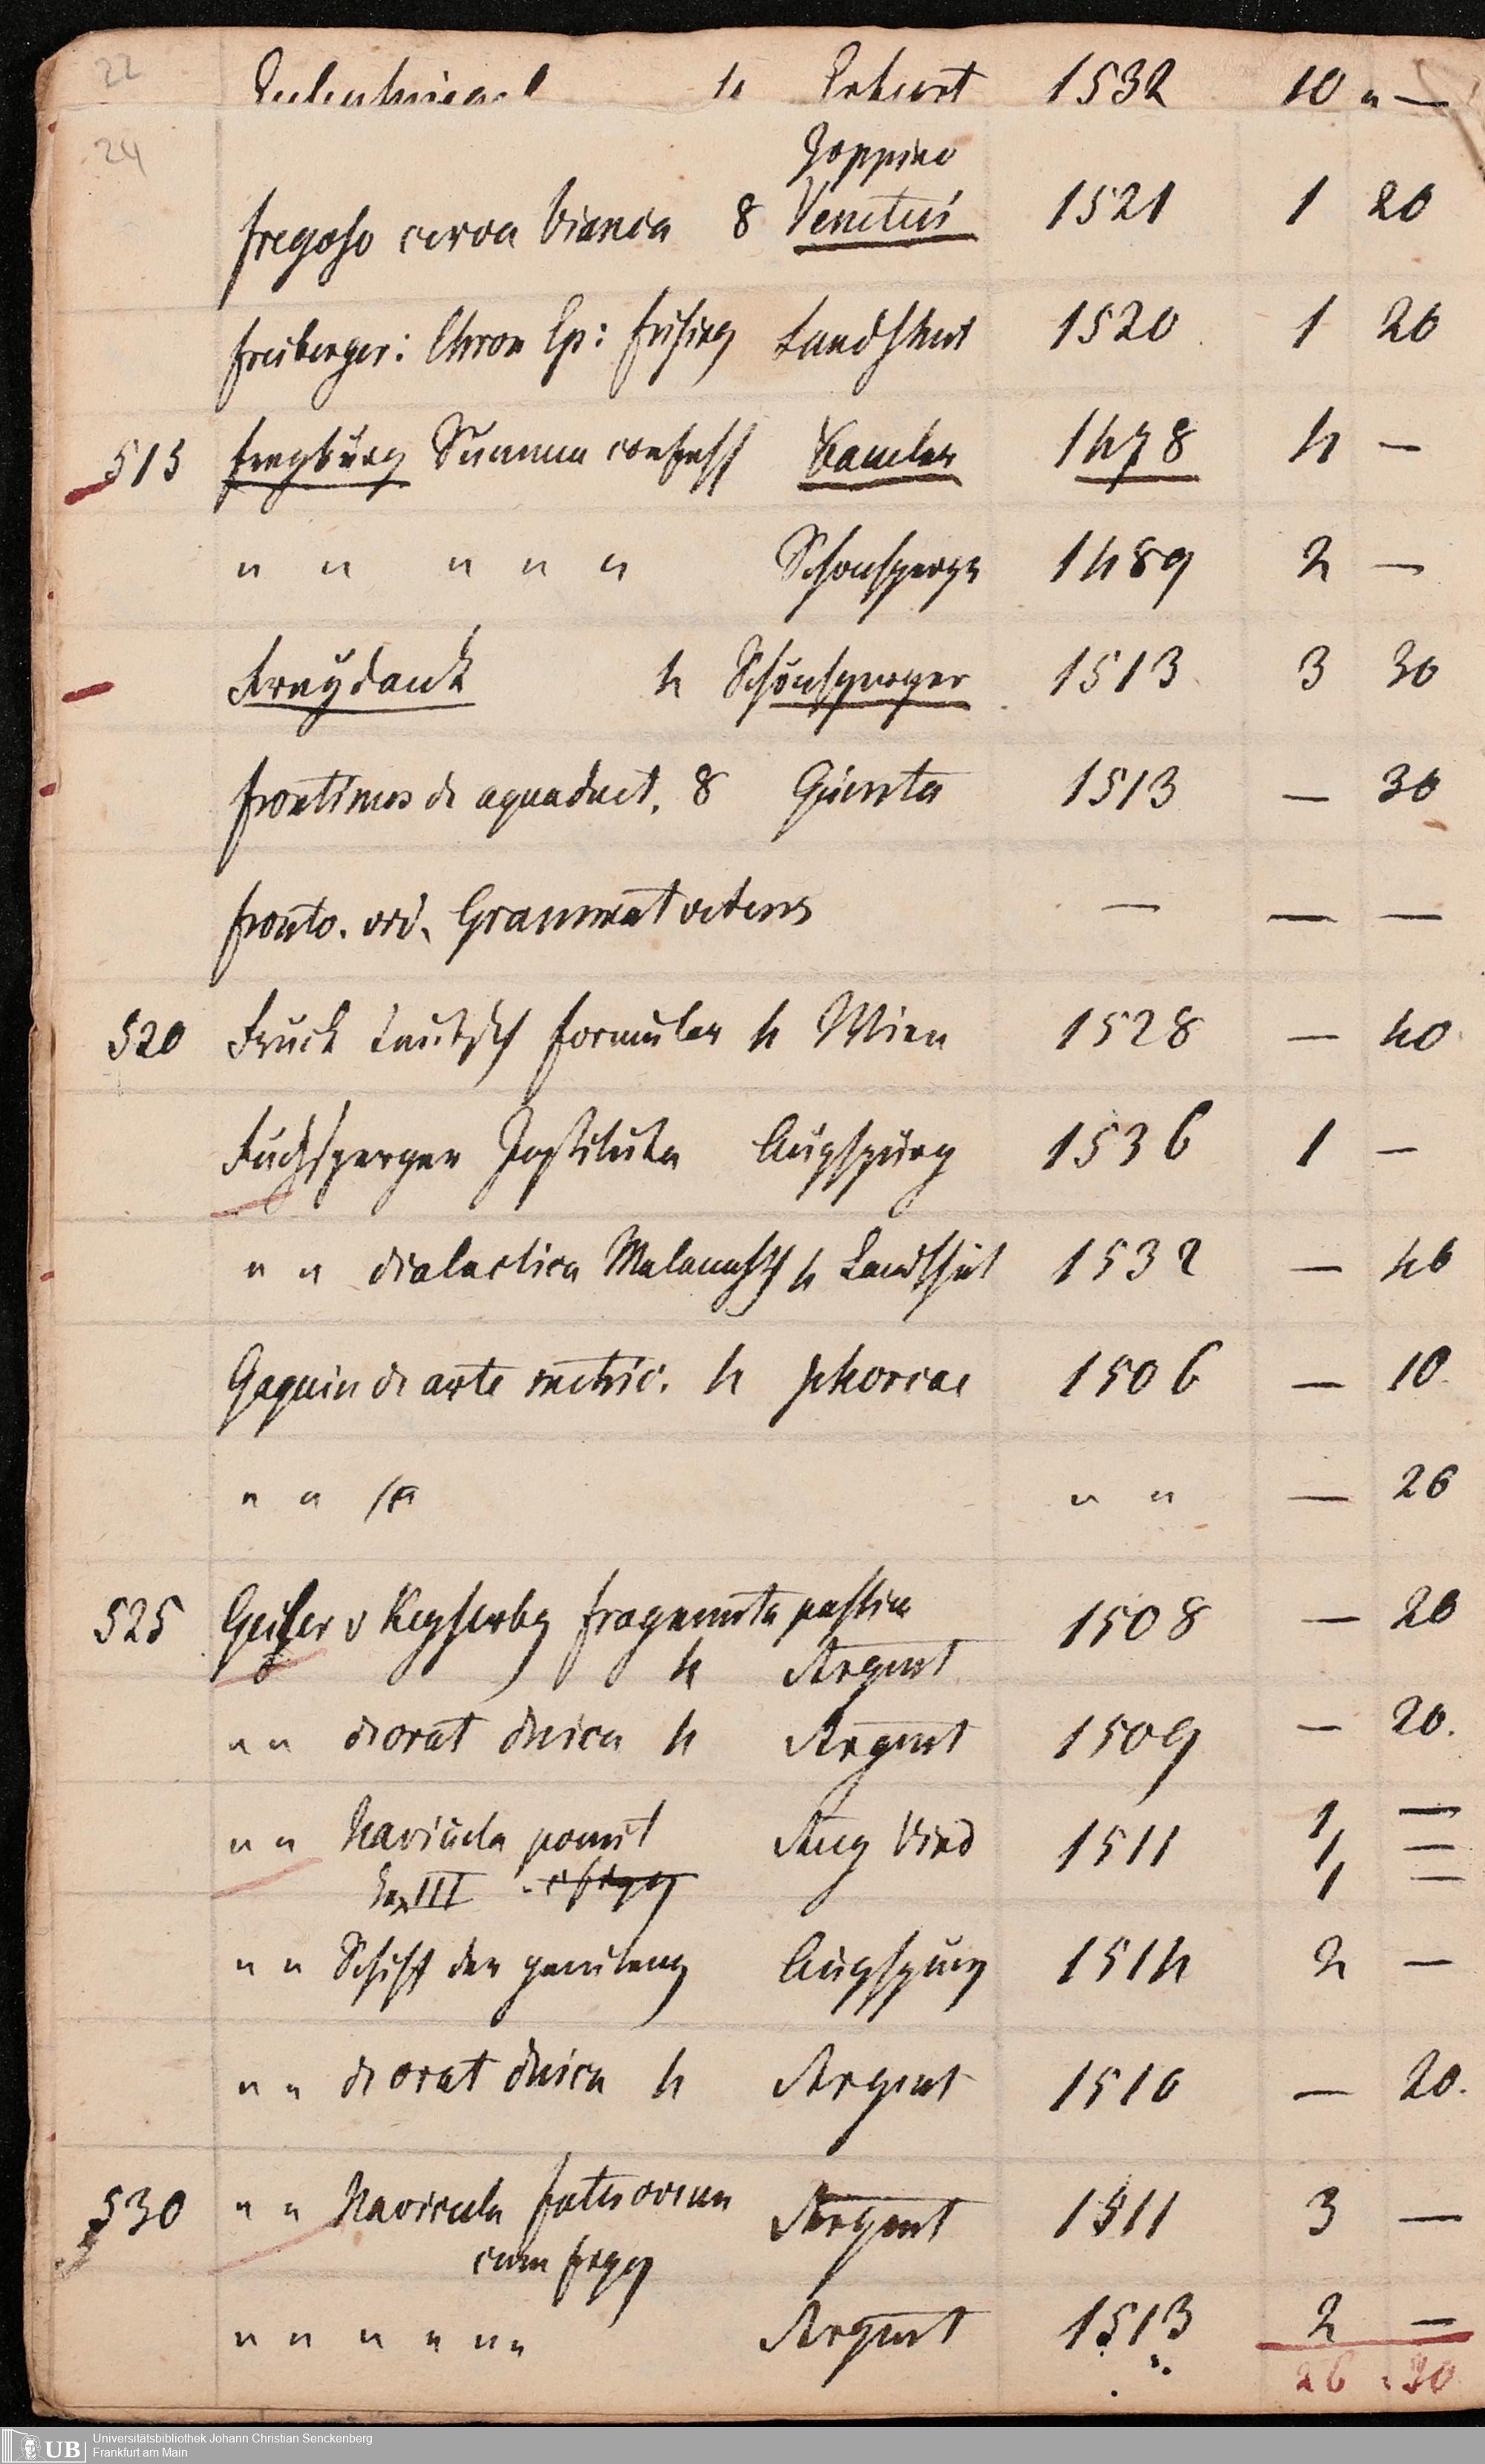 22
Eulenspiegel 4 Erfurt 1532 10 " —
24
Zoppino
fregoso cerva bianca 8 Venetiis 1521 1 20
freiberger: Chron Ep: frising Landshut 1520 1 20
515 freyburg Summa confess Bamler 1478 4 —
" " " " " Schonsperger 1489 2 —
Freydank 4 Schönsperger 1513 3 30
frontinus de aquaduct. 8 Giunta 1513 — 30
fronto. vid. Grammat veteres — — —
520 Fruck teutsch formular 4 Wien 1528 — 40
Fuchsperger Instituta Augspurg 1536 1 —
" " dialectica Melanchth 4 Landshut 1532 — 40
Gaguin de arte metric. 4 phorcae 1506 — 10
" " " " — 20
525 Geiler v Keyserbg fragmenta passion 1508 — 20
4 Argent
" " de orat dnica 4 Argent 1509 — 20.
" " Navicula penit Aug Vind 1511 1 —
Ex III 1 —
1 —
" " Schiff der penitenz Augspurg 1514 2 —
" " de orat dnica 4 Argent 1510 — 20.
530 " " Navicula fatuorum Argent 1511 3 —
cum figg
" " " " " " Argent 1513 2 —
26 . 30
UB Universitätsbibliothek Johann Christian Senckenberg
Frankfurt am Main